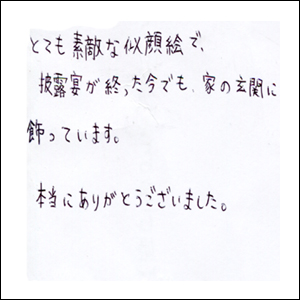 とても素敵な似顔絵で、
披露宴が終った今でも、家の玄関に
飾っています。
本当にありがとうございました。